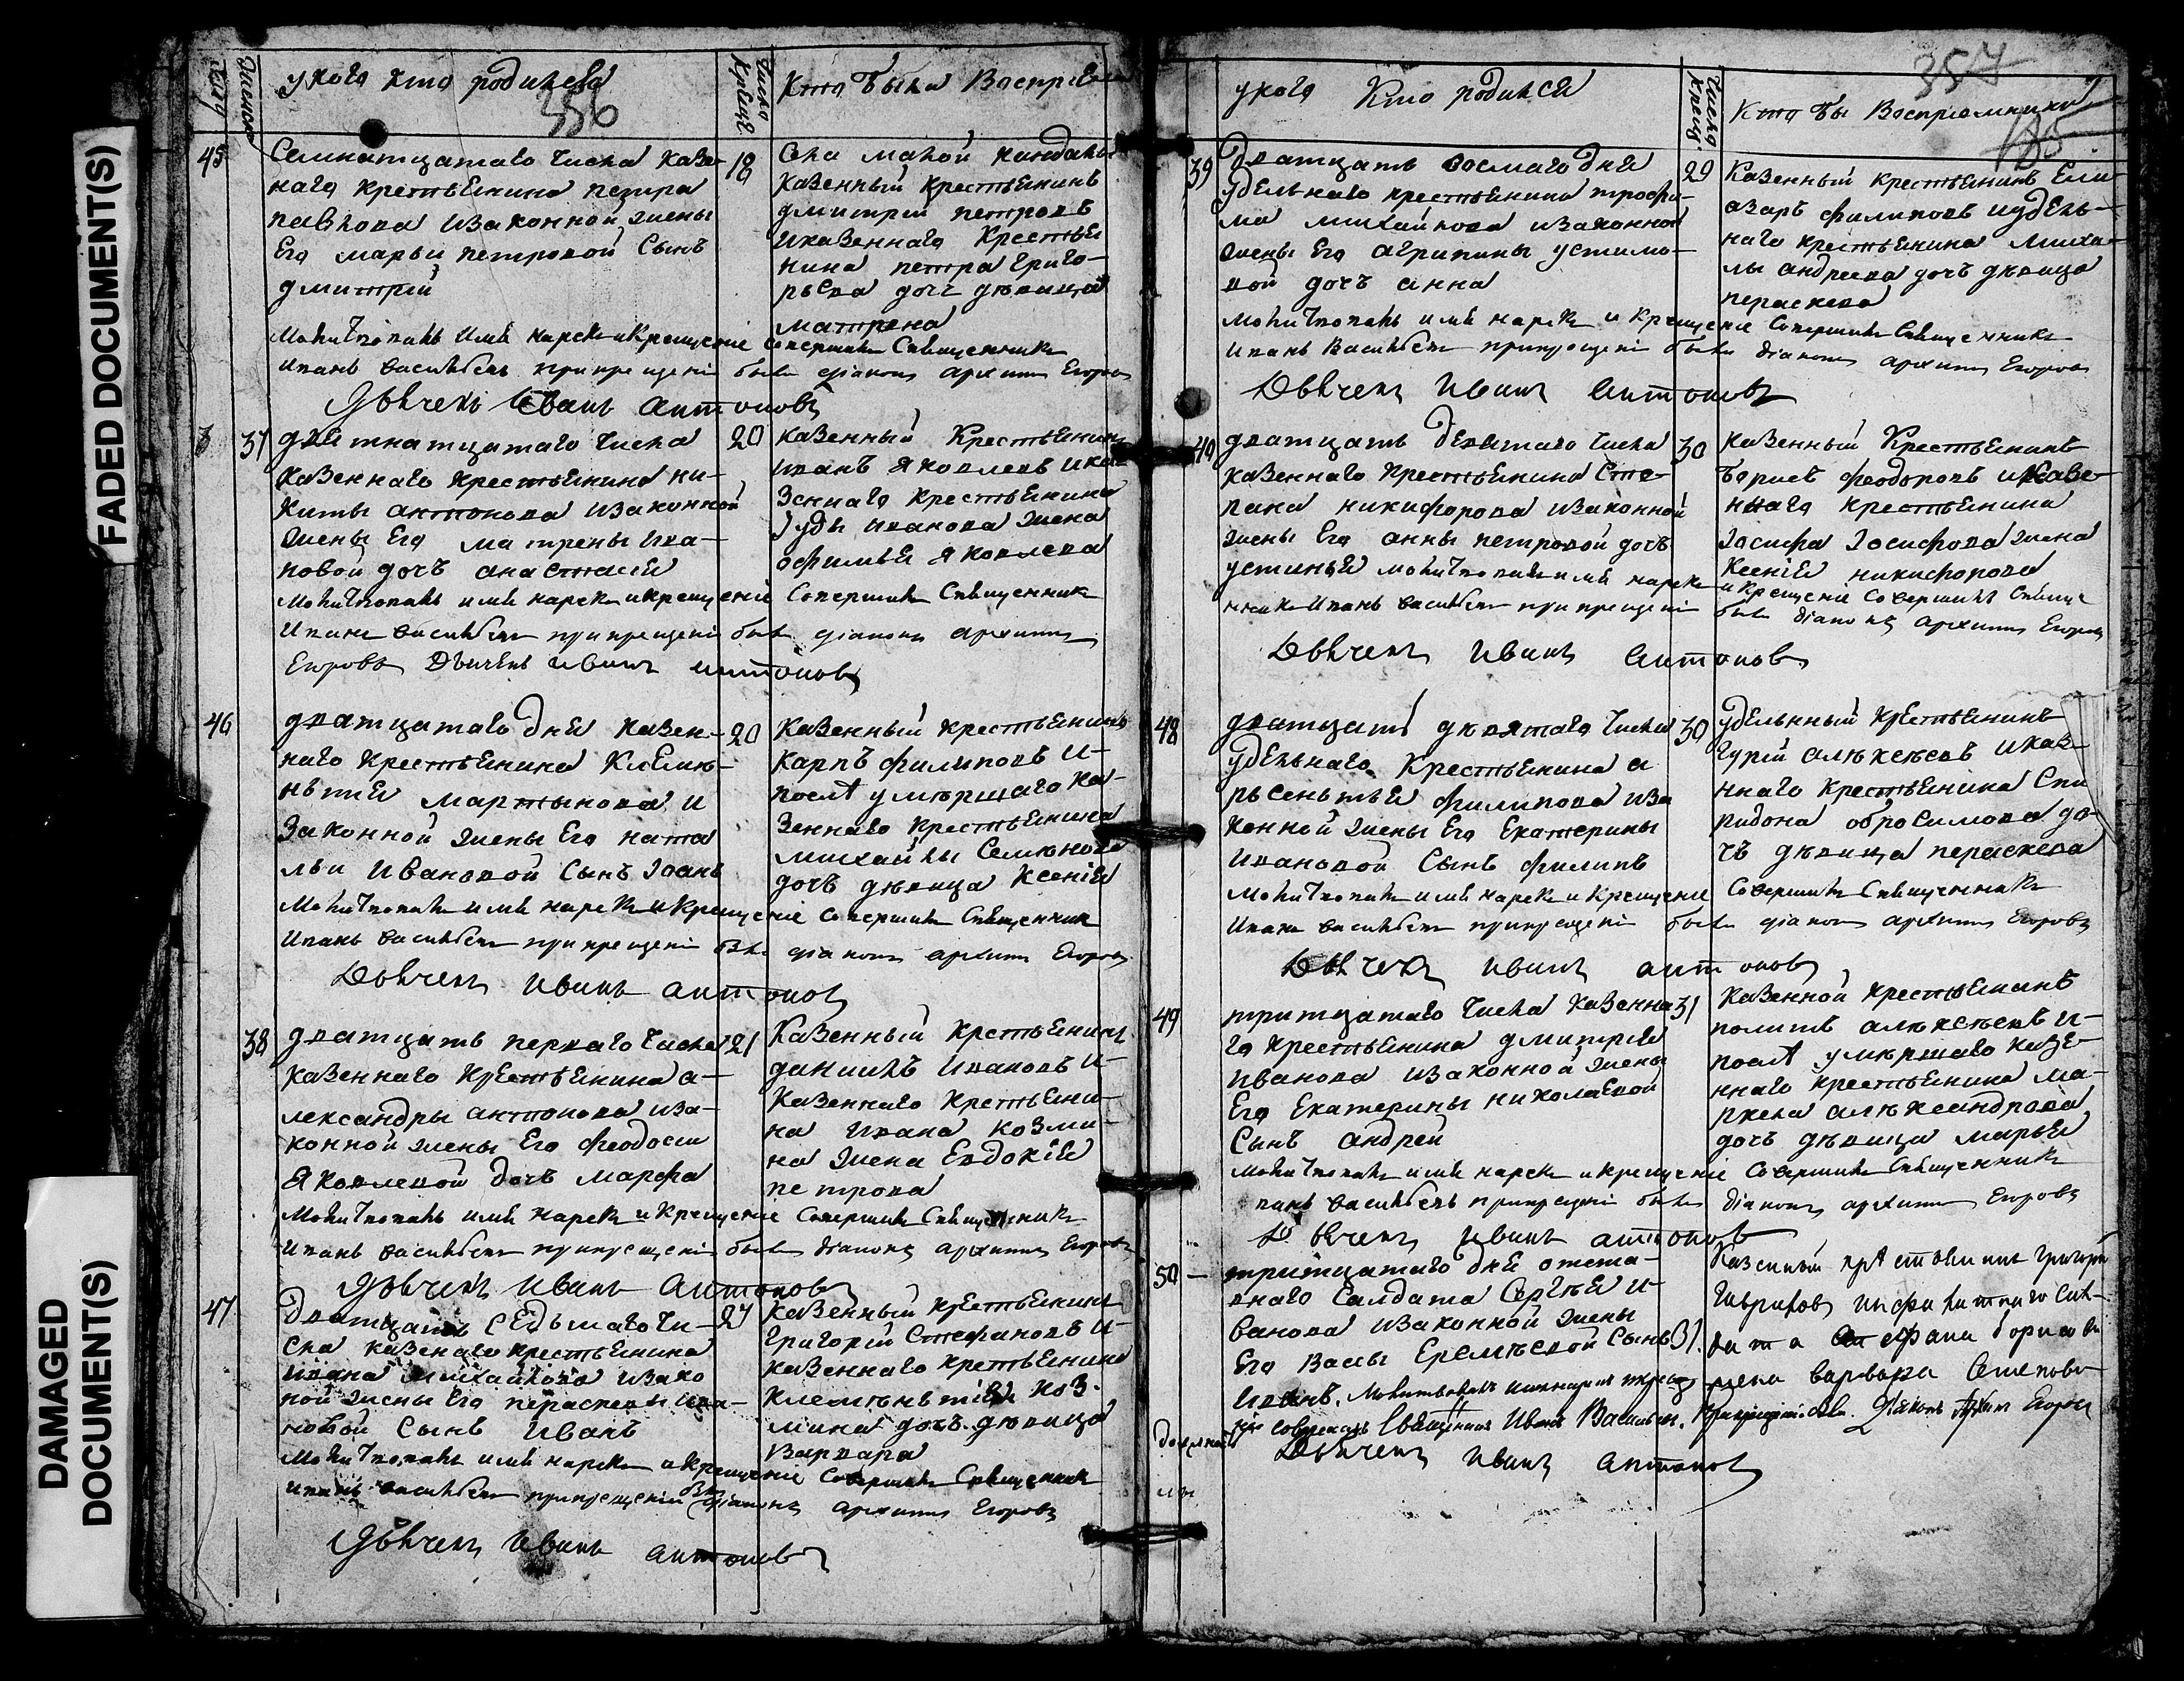 FADED DOCUMENT(S)
DAMAGED
DOCUMENT(S)
у кого кто родился
356
Число
Кто были Восприем
45
Семнатцатаго числа казе-
наго крестьянина петра
павлова изаконной жены
Его марьи петровой Сынъ
дмитрей
18
Села малой кандалы
казенный крестьянинъ
дмитрий петровъ
иказеннаго Крестья
нина петра григо-
рьева дочь девица
матрена
Молитвовалъ имя нарекъ и крещение Совершилъ Священникъ
Иванъ Васильевъ при крещении былъ диаконъ архипъ Егоровъ
Дьячекъ Иванъ Антоновъ
37
девятнатцатаго числа
казеннаго крестьянина ни-
киты антонова изаконной
жены Его матрены ива-
новой дочь анастасия
20
казенный Крестьянинъ
иванъ яковлевъ ика-
зеннаго крестьянина
Iуды иванова жена
офимья яковлева
Молитвовалъ имя нарекъ и крещение Совершилъ Священникъ
Иванъ Васильевъ при крещении былъ диаконъ архипъ
Егоровъ Дьячекъ Иванъ Антоновъ
46
дватцатаго дня казен-
наго крестьянина Клеме-
нътия мартынова и
законной жены Его ната
льи Ивановой Сынъ Iоанъ
20
казенный крестьянинъ
карпъ филиповъ и-
после умершаго ка-
зеннаго крестьянина
михайлы Семенова
дочь девица Ксения
Молитвовалъ имя нарекъ и крещение Совершилъ Священникъ
Иванъ Васильевъ при крещении былъ диаконъ архипъ Егоровъ
Дьячекъ Иванъ Антоновъ
38
дватцать перваго числа
казеннаго крестьянина а-
лександры антонова иза-
конной жены Его феодосьи
яковлевой дочь марфа
21
Казенный крстьянинъ
даниилъ ивановъ и-
казеннаго крстьяни-
на ивана козми-
на жена Евдокия
петрова
Молитвовалъ имя нарекъ и крещение Совершилъ Священникъ
Иванъ Васильевъ при крещении былъ диаконъ архипъ Егоровъ
Дьячекъ Иванъ Антоновъ
47
Дватцать Седьмаго чи-
сла казенаго крестьянина
ивана михайлова изако
ной жены Его пераскевы ива-
новой Сынъ Иванъ
27
казенный крестьянинъ
григорий Стефановъ и-
казеннаго крстьянина
клеменътия коз-
мина дочь девица
Варвара
Молитвовалъ имя нарекъ и крещение Совершилъ Священникъ
Иванъ Васильевъ при крещении былъ диаконъ архипъ Егоровъ
Дьячекъ Иванъ Антоновъ
357
у кого Кто родился
Число
Кто бы Восприемники
39
дватцать восмаго дня
удельнаго крестьянина трофи-
ма михайлова изаконной
жены Его агрипины устимо-
вой дочь анна
29
Казенный крестьянинъ Ели-
азаръ филиповъ иудель-
наго крестьянина михай-
лы андреева дочь девица
пераскева
Молитвовалъ имя нарекъ и крещение Совершилъ Священникъ
Иванъ Васильевъ при крещении былъ диаконъ архипъ Егоровъ
Дьячекъ Иванъ Антоновъ
40
дватцать девятаго числа
казеннаго крестьянина Сте-
пана никифорова изаконной
жены Его анны петровой дочь
устинья Молитвовалъ имя нарекъ
30
казенный Крестьянинъ
борисъ феодоровъ иказе-
ннаго крестьянина
Iосифа Iосифова жена
Ксения никифорова
и крещение Совершилъ Свяще
нникъ Иванъ Васильевъ при крещении былъ диаконъ архипъ Егоровъ
Дьячекъ Иванъ Антоновъ
48
дватцать девятаго числа
удельнаго крестьянина а
рьсенътья филипова иза
конной жены Его Екатерины
Ивановой Сынъ филипъ
30
удельнный крестьянинъ
гурий алексеевъ иказе-
ннаго крестьянина Спи
ридона обросимова до-
чь девица пераскева
Молитвовалъ имя нарекъ и крещение Совершилъ Священникъ
Иванъ Васильевъ при крещении былъ диаконъ архипъ Егоровъ
Дьячекъ Иванъ Антоновъ
49
тритцатаго числа казенна
го крестьянина дмитрея
иванова изаконной жены
Его Екатерины николаевой
Сынъ андрей
31
казенной крестьянинъ
политъ алексеевъ и-
после умершаго казе-
ннаго крестьянина ма-
ркела александрова
дочь девица марья
Молитвовалъ имя нарекъ и крещение Совершилъ Священникъ
Иванъ Васильевъ при крещении былъ диаконъ архипъ Егоровъ
Дьячекъ Иванъ Антоновъ
50
тритцатаго дня отста-
внаго Салдата Сергея и-
ванова изаконной жены
Его Васы Еремеевой Сынъ
Иванъ.
31.
Казенный крестьянинъ григорий
Гавриловъ
жена варвара Степанова
Совершилъ Священникъ Иванъ Васильевъ. При крещении былъ Диаконъ Архипъ Егоровъ
Дьячекъ Иванъ Антоновъ